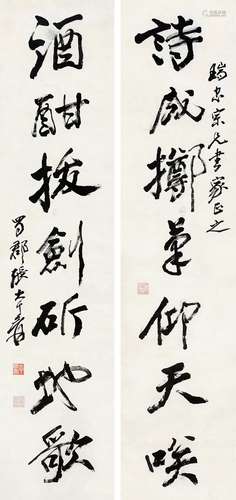 瑞宗兄書家正之
詩成擲筆仰天咲
酒酣拔劍斫地歌
蜀郡張大千爰